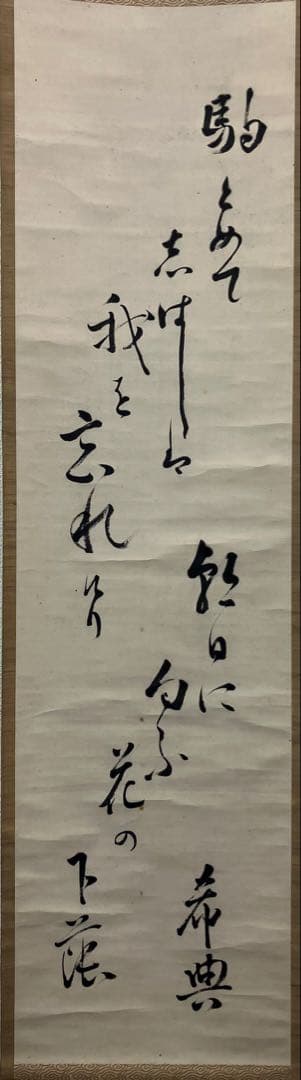 駒とめて
志はしは
我を
忘れけり
朝日に
匂ふ
花の
下蔭
希典